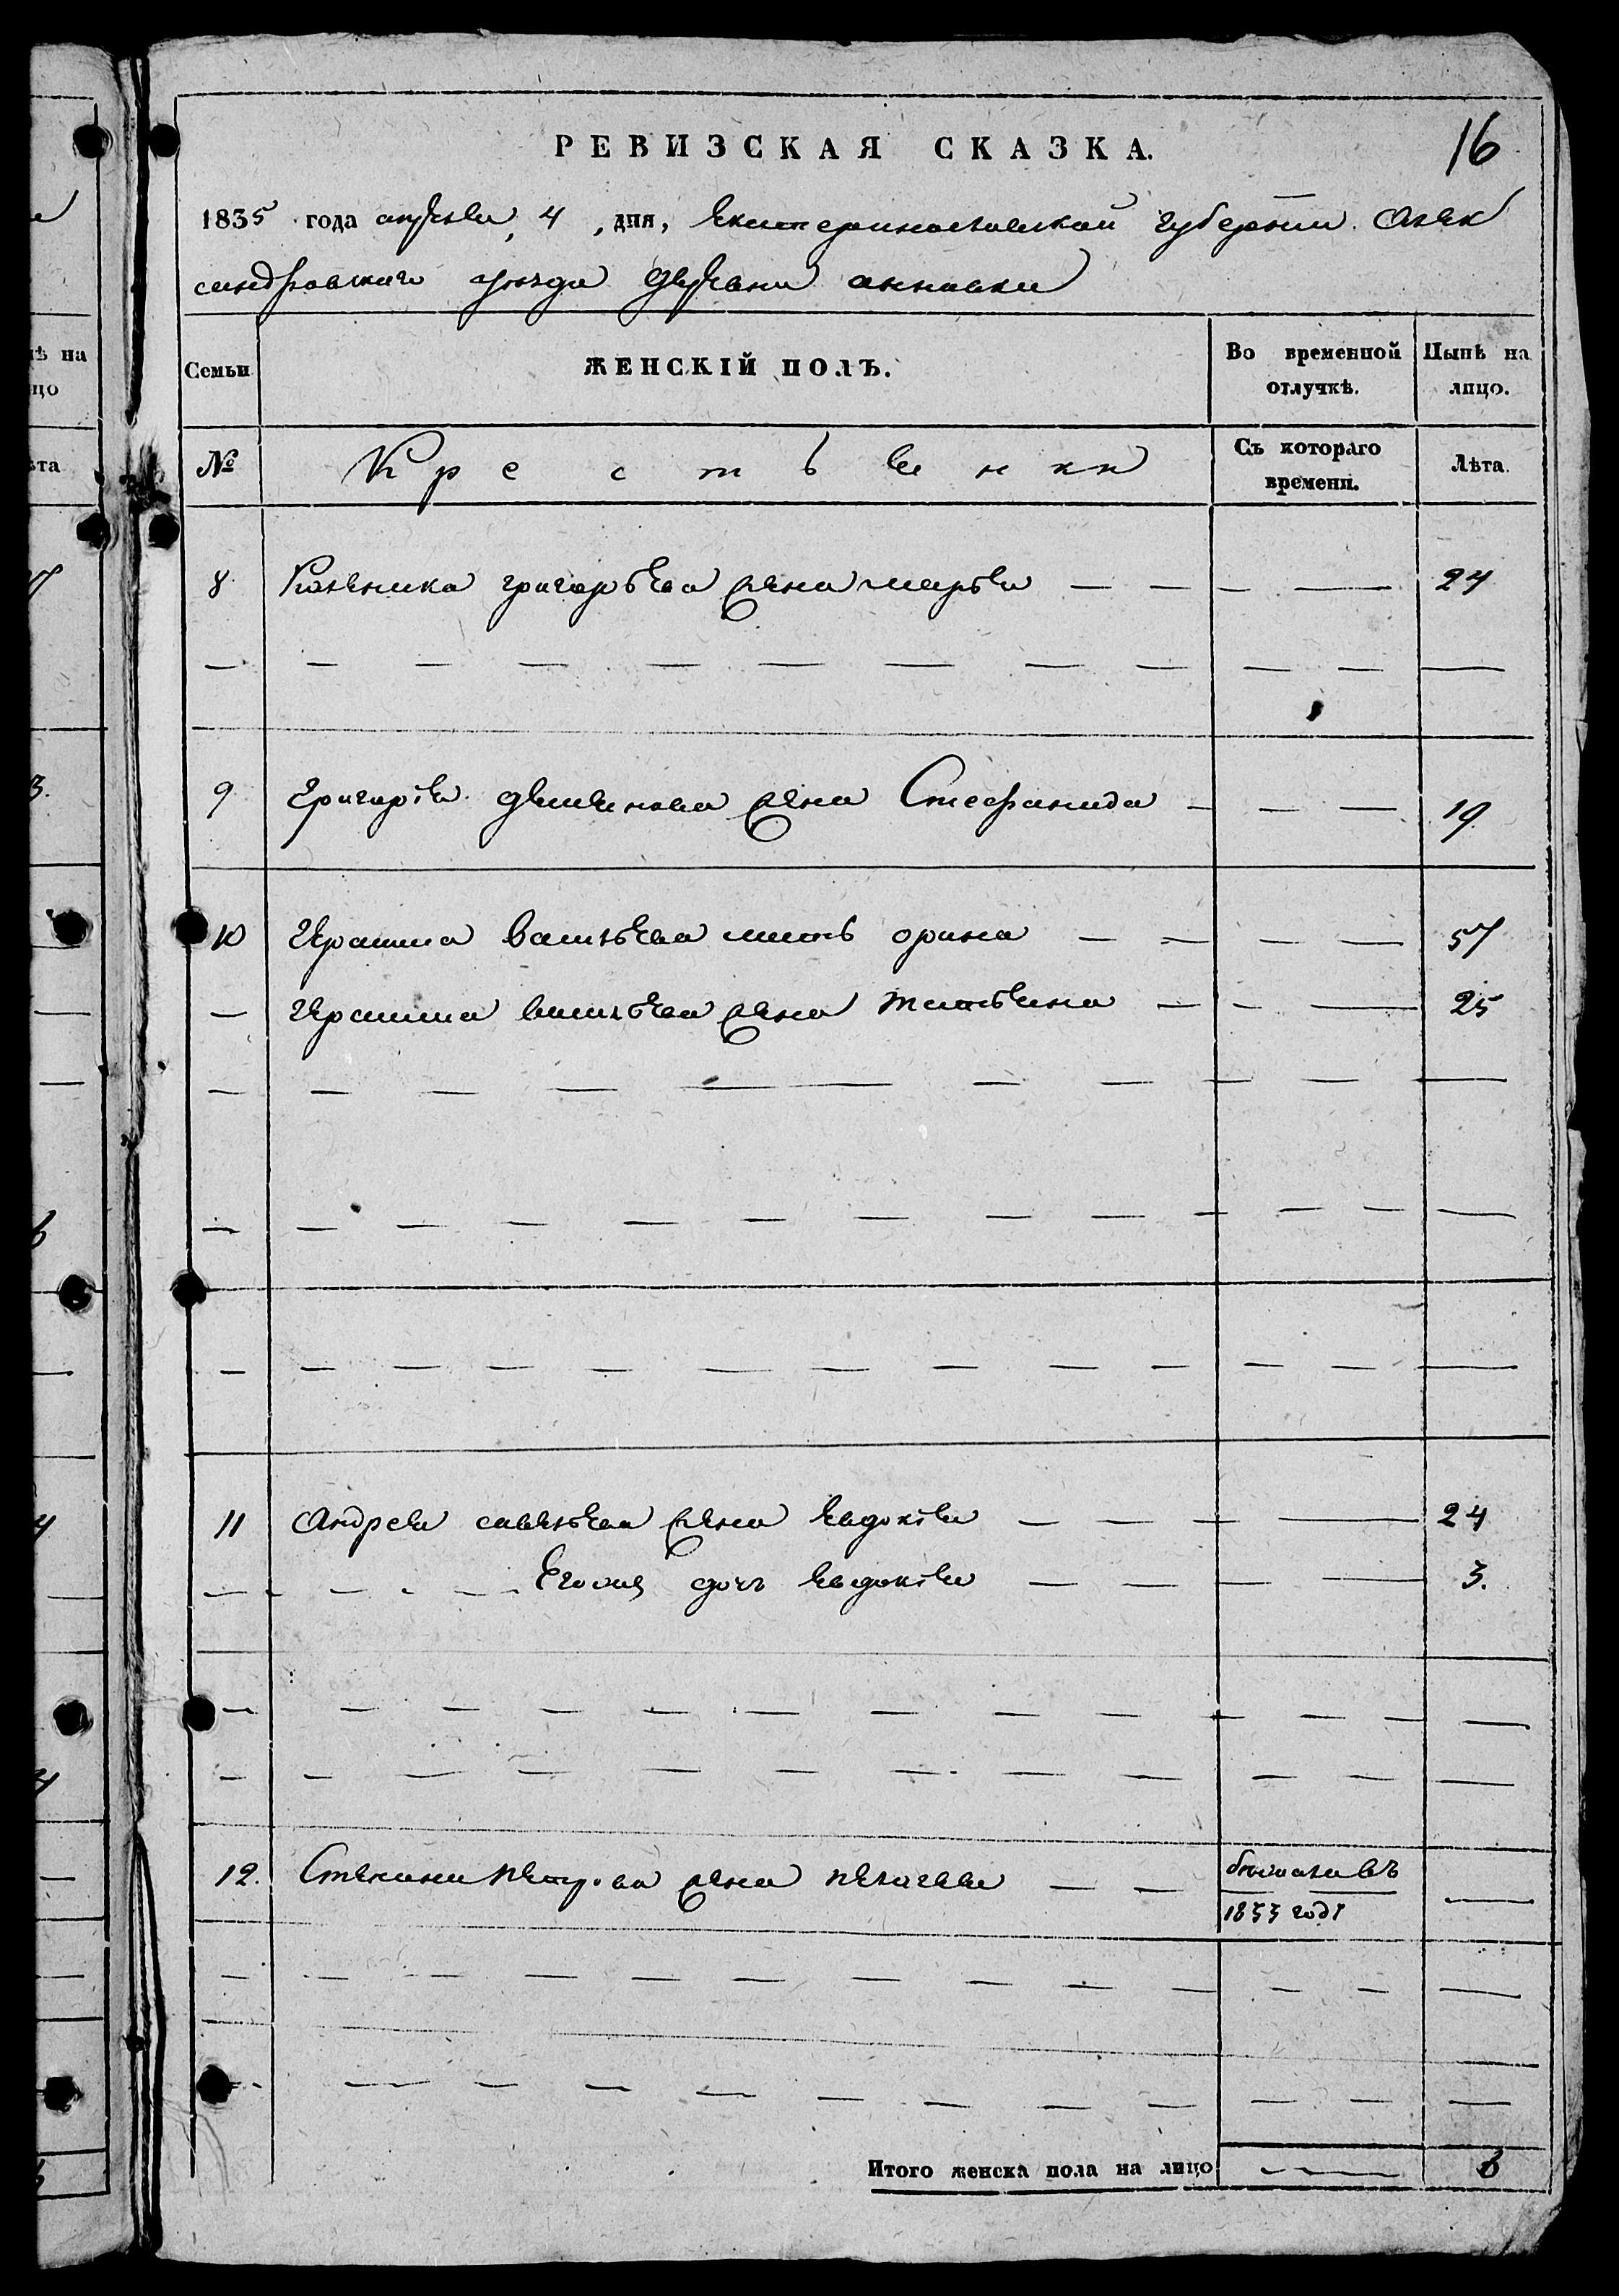 РЕВИЗСКАЯ СКАЗКА.
16
1835 года апреля, 4, дня, Екатеринославской губернии. Алек
сандровскаго уезда деревни анновки
Семьи
ЖЕНСКІЙ ПОЛЪ.
Во временной отлучкѣ.
Нынѣ на лицо.
№
Крестьянки
Съ котораго времени.
Лѣта.
8 григорьева жена марья — — — — 24
— — — — — — — — — — — —
9 Григорія семенова жена Стефанида — — — 19
10 Герасима васильева мать орина — — — — 57
— Герасима васильева жена татьяна — — — 25
— — — — — — — — — — —
— — — — — — — — — — — — —
— — — — — — — — — — — — —
11 Андрея савельева жена Евдокія — — — — 24
— — — — — Его дочь Евдокія — — — — 3.
— — — — — — — — — — — — —
— — — — — — — — — — — — —
12. Степана петрова жена пелагея — — въ
1833 годе —
— — — — — — — — — — — — —
— — — — — — — — — — — —
Итого женска пола на лицо — 6